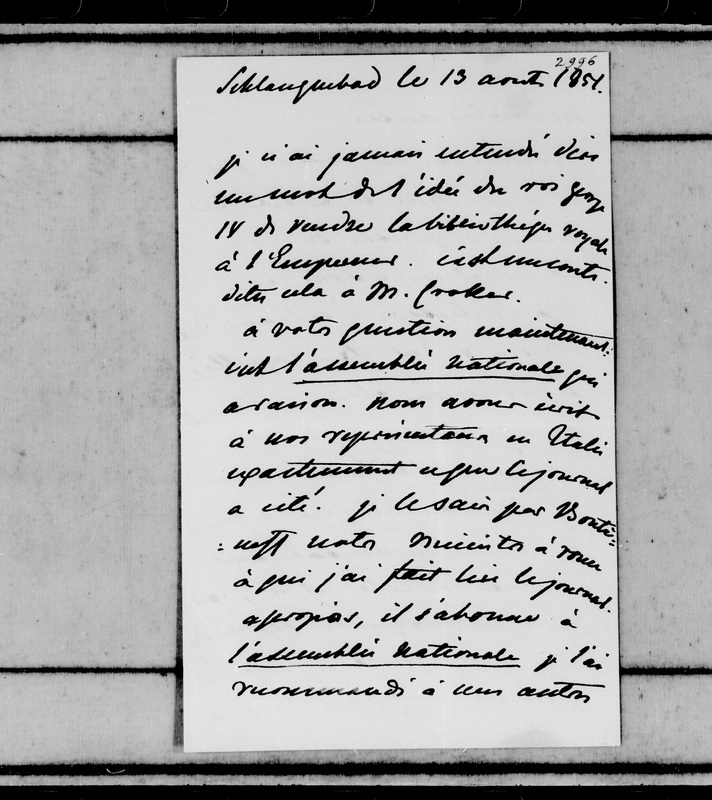 2996
Schlangenbad le 13 aout 1851.
je n'ai jamais entendu dire
un mot de l'idée du roi George
IV de vendre la bibliothèque royale
à l'Empereur. c'est un conte.
dites cela à M. Croker.
à votre question maintenant:
c'est l'assemblée Nationale qui
a raison. nous avons écrit
à nos représentans en Italie
exactement ce que le journal
a cité. je le sais par Boute=
=neff notre Ministre à rome
à qui j'ai fait lire le journal.
apropos, il s'abonne à
l'assemblée Nationale je l'ai
recommandé à un autre